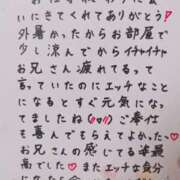 いにきてくれてありがとう!
外暑かったからお部屋で
少し涼んでからイチャイチャ
お兄さん疲れてるって
言っていたのにエッチなこと
になるとすぐ元気になっ
てましたね(ω)♡ ご奉仕
も喜んでもらえてよかった〜♡
お兄さんの感じてる姿最
高でした♡ またエッチな自分